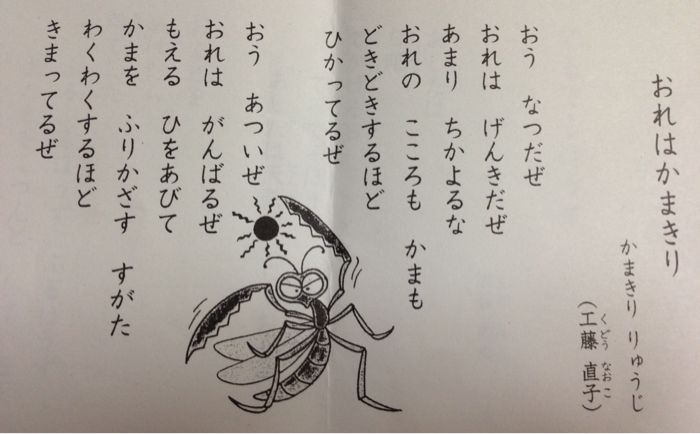 おれはかまきり
かまきり りゅうじ
（工藤 直子）
くどう なおこ
おう なつだぜ
おれは げんきだぜ
あまり ちかよるな
おれの こころも かまも
どきどきするほど
ひかってるぜ
おう あついぜ
おれは がんばるぜ
もえる ひをあびて
かまを ふりかざす すがた
わくわくするほど
きまってるぜ